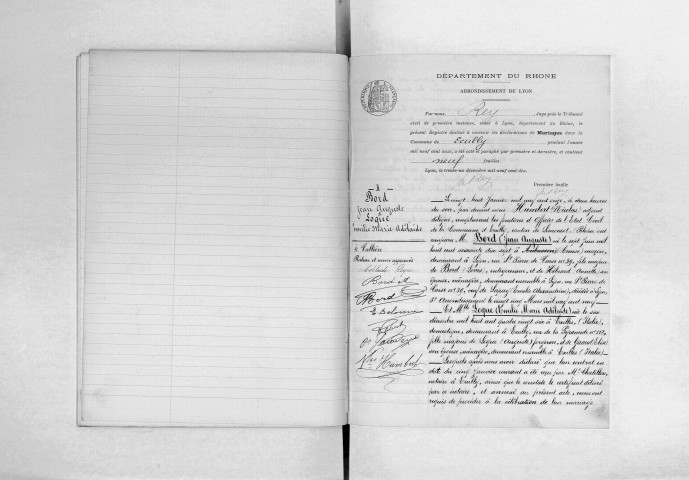 DÉPARTEMENT DU RHONE
ARRONDISSEMENT DE LYON
Par nous, Rey, Juge près le Tribunal
civil de première instance, séant à Lyon, département du Rhône, le
présent Registre destiné à recevoir les déclarations de Mariages dans la
Commune de Ecully pendant l'année
mil neuf cent onze, a été coté et paraphé par première et dernière, et contient
neuf feuillets
Lyon, le trente-un décembre mil neuf cent dix.
Première feuille
1
Bord
Jean Auguste
Logre
Emilie Marie Adélaïde
Bord
Bord
Vve Humbert
Le vingt huit Janvier mil neuf cent onze, à deux heures
du soir, par devant nous Humbert Nicolas, adjoint
délégué, remplissant les fonctions d'Officier de l'Etat Civil
de la Commune d'Ecully, canton de Limonest, (Rhône) ont
comparu M. Bord (Jean Auguste) né le sept Juin mil
huit cent soixante dix sept à (Creuse) maçon,
demeurant à Lyon, rue St Pierre de Vaise n° 39, fils majeur
de Bord (Louis), entrepreneur, et de Annette, son
épouse, ménagère, demeurant ensemble à Lyon, rue St Pierre de
Vaise n° 39, veuf de (Emilie Alexandrine), décédée à Lyon,
5e Arrondissement le vingt cinq Mars mil neuf cent neuf
Et Mlle Logre (Emilie Marie Adélaïde) née le six
décembre mil huit cent quatre vingt six à (Italie),
domestique, demeurant à Ecully, rue de la Pyramide n° 117,
fille majeure de Logre (Auguste) forgeron, et de Elise
son épouse, ménagère, demeurant ensemble à (Italie)
Lesquels après nous avoir déclaré que leur contrat en
date du cinq Janvier courant a été reçu par Me Chatillon,
notaire à Ecully, ainsi que le constate le certificat délivré
par ce notaire, et annexé au présent acte, nous ont
requis de procéder à la célébration de leur mariage